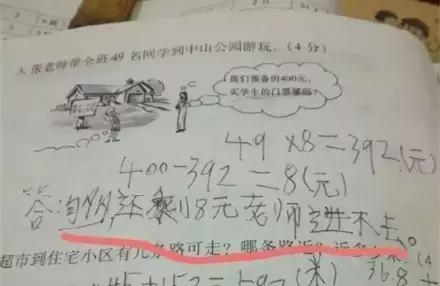 3. 张老师带全班49名同学到中山公园游玩。(4分)
我们预备的400元,
买学生的门票够吗?
49×8=392(元)
400-392=8(元)
答沟的,还剩8元老师进不去。
超市到住宅小区有几条路可走?哪条路近?近多少米?(4